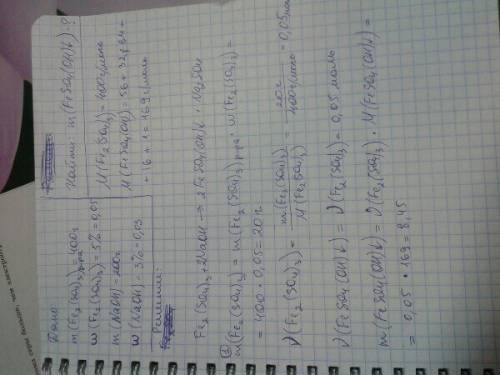 Дано:
m(Fe₂(SO₄)₃)р-ра = 400г
ω(Fe₂(SO₄)₃) = 5% = 0,05
m(NaOH) = 200г
ω(NaOH) = 3% = 0,03
Найти: m(FeSO₄(OH)↓) - ?
M(Fe₂(SO₄)₃) = 400г/моль
M(FeSO₄(OH)) = 56 + 32 + 64 +
+ 16 + 1 = 169 г/моль
Решение:
Fe₂(SO₄)₃ + 2NaOH → 2FeSO₄(OH)↓ + Na₂SO₄
m(Fe₂(SO₄)₃) = m(Fe₂(SO₄)₃)р-ра · ω(Fe₂(SO₄)₃) =
= 400 · 0,05 = 20 г.
ν(Fe₂(SO₄)₃) = m(Fe₂(SO₄)₃) / M(Fe₂(SO₄)₃) = 20г / 400г/моль = 0,05 моль
ν(FeSO₄(OH)↓) = ν(Fe₂(SO₄)₃) = 0,05 моль
m(FeSO₄(OH)↓) = ν(Fe₂(SO₄)₃) · M(FeSO₄(OH)↓) =
= 0,05 · 169 = 8,45